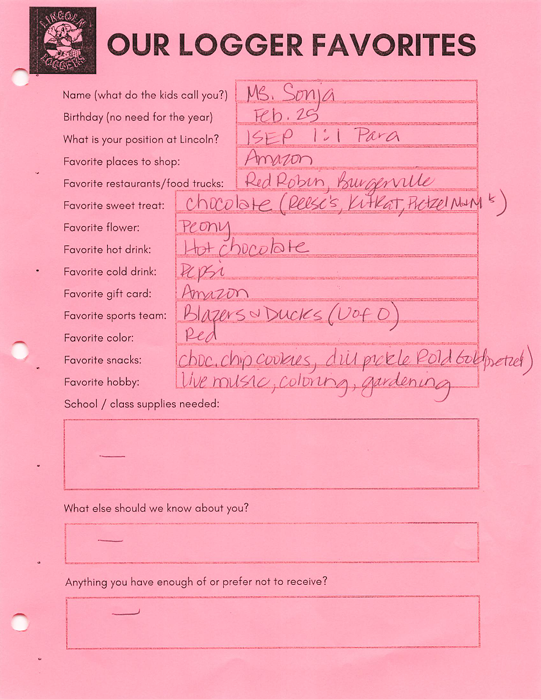 LINCOLN
LOGGERS
OUR LOGGER FAVORITES
Name (what do the kids call you?) Ms. Sonja
Birthday (no need for the year) Feb. 25
What is your position at Lincoln? ISEP 1:1 Para
Favorite places to shop: Amazon
Favorite restaurants/food trucks: Red Robin, Burgerville
Favorite sweet treat: chocolate (Reese's, KitKat, Pretzel M&M's)
Favorite flower: Peony
Favorite hot drink: Hot chocolate
Favorite cold drink: Pepsi
Favorite gift card: Amazon
Favorite sports team: Blazers & Ducks (U of O)
Favorite color: Red
Favorite snacks: choc. chip cookies, dill pickle Rold Gold (pretzel)
Favorite hobby: live music, coloring, gardening
School / class supplies needed:
—
What else should we know about you?
—
Anything you have enough of or prefer not to receive?
—